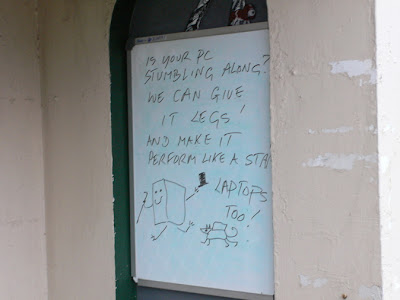 IS YOUR PC
STUMBLING ALONG?
WE CAN GIVE
IT LEGS!
AND MAKE IT
PERFORM LIKE A STA
LAPTOPS
TOO!